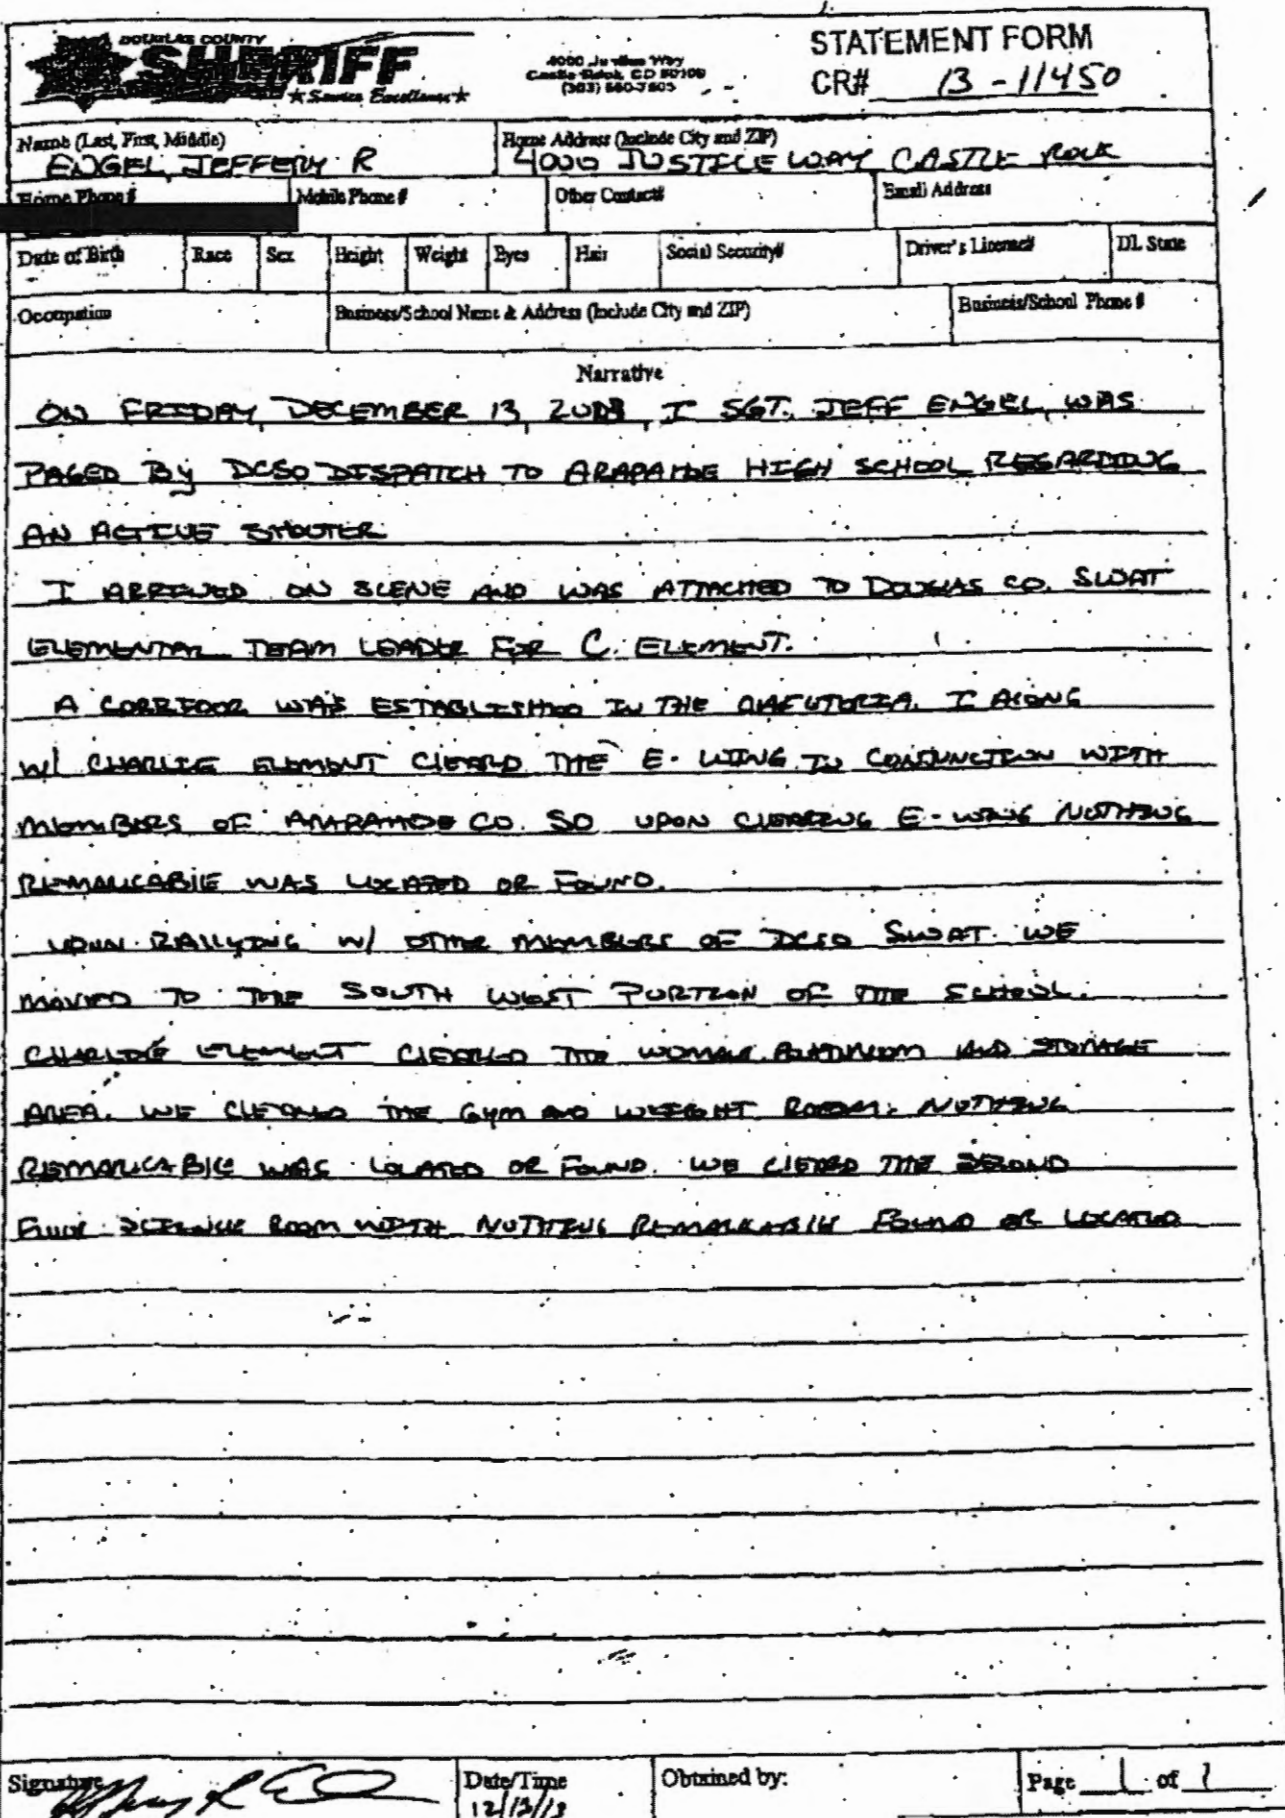 DOUGLAS COUNTY
SHERIFF
★ Service Excellence ★
4000 Justice Way
Castle Rock, CO 80109
(303) 660-7505
STATEMENT FORM
CR# 13-11450
Name (Last, First, Middle)
ENGEL, JEFFERY R
Home Address (Include City and ZIP)
4000 JUSTICE WAY CASTLE ROCK
Home Phone #
Mobile Phone #
Other Contact#
Email Address
Date of Birth
Race
Sex
Height
Weight
Eyes
Hair
Social Security#
Driver's License#
DL State
Occupation
Business/School Name & Address (Include City and ZIP)
Business/School Phone #
Narrative
ON FRIDAY, DECEMBER 13, 2013, I SGT. JEFF ENGEL, WAS
PAGED BY DCSO DISPATCH TO ARAPAHOE HIGH SCHOOL REGARDING
AN ACTIVE SHOOTER.
I ARRIVED ON SCENE AND WAS ATTACHED TO DOUGLAS CO. SWAT
ELEMENTAL TEAM LEADER FOR C. ELEMENT.
A CORRIDOR WAS ESTABLISHED IN THE CAFETORIA. I ALONG
W/ CHARLIE ELEMENT CLEARD THE E-WING IN CONJUNCTION WITH
MEMBERS OF ARAPAHOE CO. SO UPON CLEARING E-WING NOTHING
REMARKABLE WAS LOCATED OR FOUND.
UPON RALLYING W/ OTHER MEMBERS OF DCSO SWAT. WE
MOVED TO THE SOUTH WEST PORTION OF THE SCHOOL.
CHARLIE ELEMENT CLEARED THE WOMANS BATHROOM AND STORAGE
AREA. WE CLEARED THE GYM AND WEIGHT ROOM. NOTHING
REMARKABLE WAS LOCATED OR FOUND. WE CLEARD THE SECOND
FLOOR SCIENCE ROOM WITH NOTHING REMARKABLE FOUND OR LOCATED
Signature
Date/Time
12/13/13
Obtained by:
Page 1 of 1